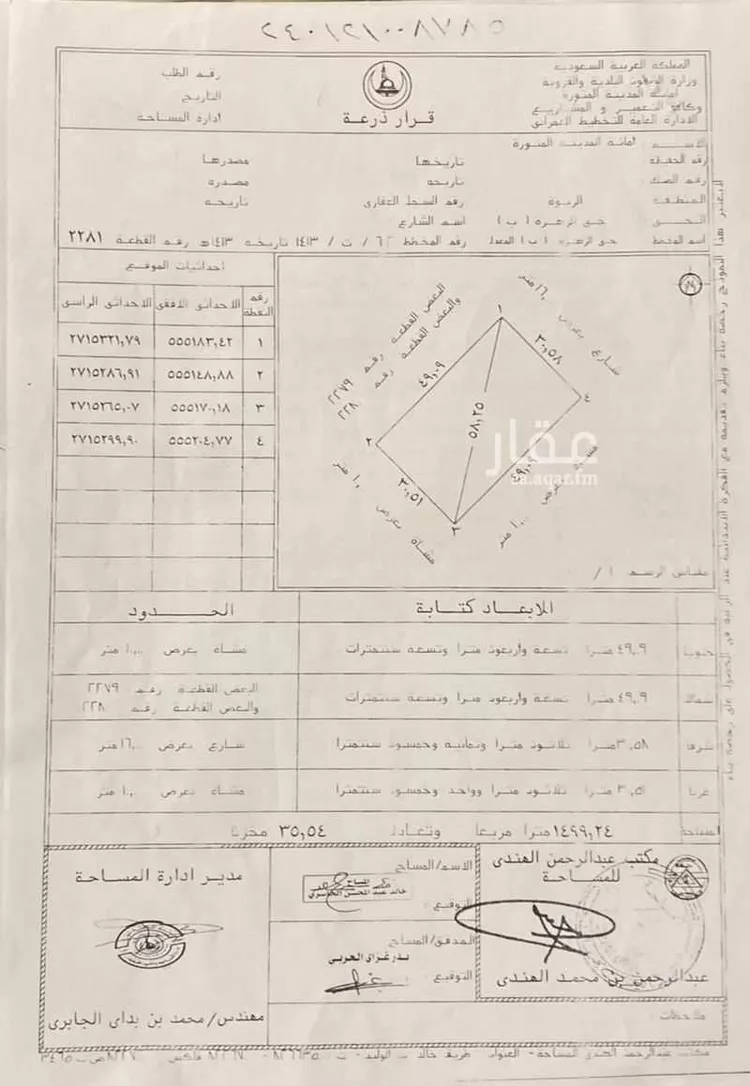 المملكة العربية السعودية
وزارة الشؤون البلدية والقروية
أمانة المدينة المنورة
وكالة التعمير و المشاريع
الادارة العامة للتخطيط العمراني
قرار ذرعة
رقم الطلب
التاريخ
ادارة المساحة
الاسم : امانة المدينة المنورة
رقم الحفيظة تاريخها مصدرها
رقم الصك تاريخه مصدره
المنطقة الربوة رقم السجل العقاري تاريخه
الحي حي الزهرة ( ب ) اسم الشارع
اسم المخطط حي الزهرة ( ب ) المعدل رقم المخطط / ت / ١٤١٣ تاريخه ١٤١٣هـ رقم القطعة ٢٢٨١
احداثيات الموقع
رقم النقطة الاحداثي الافقي الاحداثي الراسي
١ ٥٥٥١٨٣,٤٢ ٢٧١٥٣٢١,٧٩
٢ ٥٥٥١٤٨,٨٨ ٢٧١٥٢٨٦,٩١
٣ ٥٥٥١٧٠,١٨ ٢٧١٥٢٦٥,٠٧
٤ ٥٥٥٢٠٤,٧٧ ٢٧١٥٢٩٩,٩٠
البعض القطعة رقم ٢٢٧٩
والبعض القطعة رقم ٢٢٨٠
شارع بعرض ١٦,٠٠ متر
١
٣٠,٥٨
٤
٤٩,٠٩
٥٨,٢٥
٤٩,٠٩
٢
٣٠,٥١
٣
مشاه بعرض ١٠,٠٠ متر
مشاه بعرض ١٠,٠٠ متر
عقار
sa.aqar.fm
مقياس الرسم ١ /
الابعاد كتابة الحدود
جنوبا ٤٩,٠٩ مترا تسعة واربعون مترا وتسعة سنتمترات مشاه بعرض ١٠,٠٠ متر
شمالا ٤٩,٠٩ مترا تسعة واربعون مترا وتسعة سنتمترات البعض القطعة رقم ٢٢٧٩
والبعض القطعة رقم ٢٢٨٠
شرقا ٣٠,٥٨ مترا ثلاثون مترا وثمانية وخمسون سنتمترا شارع بعرض ١٦,٠٠ متر
غربا ٣٠,٥١ مترا ثلاثون مترا وواحد وخمسون سنتمترا مشاه بعرض ١٠,٠٠ متر
المساحة ١٤٩٩,٢٤ مترا مربعا وتعادل ٣٥,٥٤ مخزنا
مكتب عبدالرحمن الهندي
للمساحة
عبدالرحمن بن محمد الهندي
الاسم/ المساح
التوقيع
المدقق/ المساح
بدر غزاي الحربي
التوقيع
مدير ادارة المساحة
مهندس/ محمد بن بداي الجابري
ملاحظات